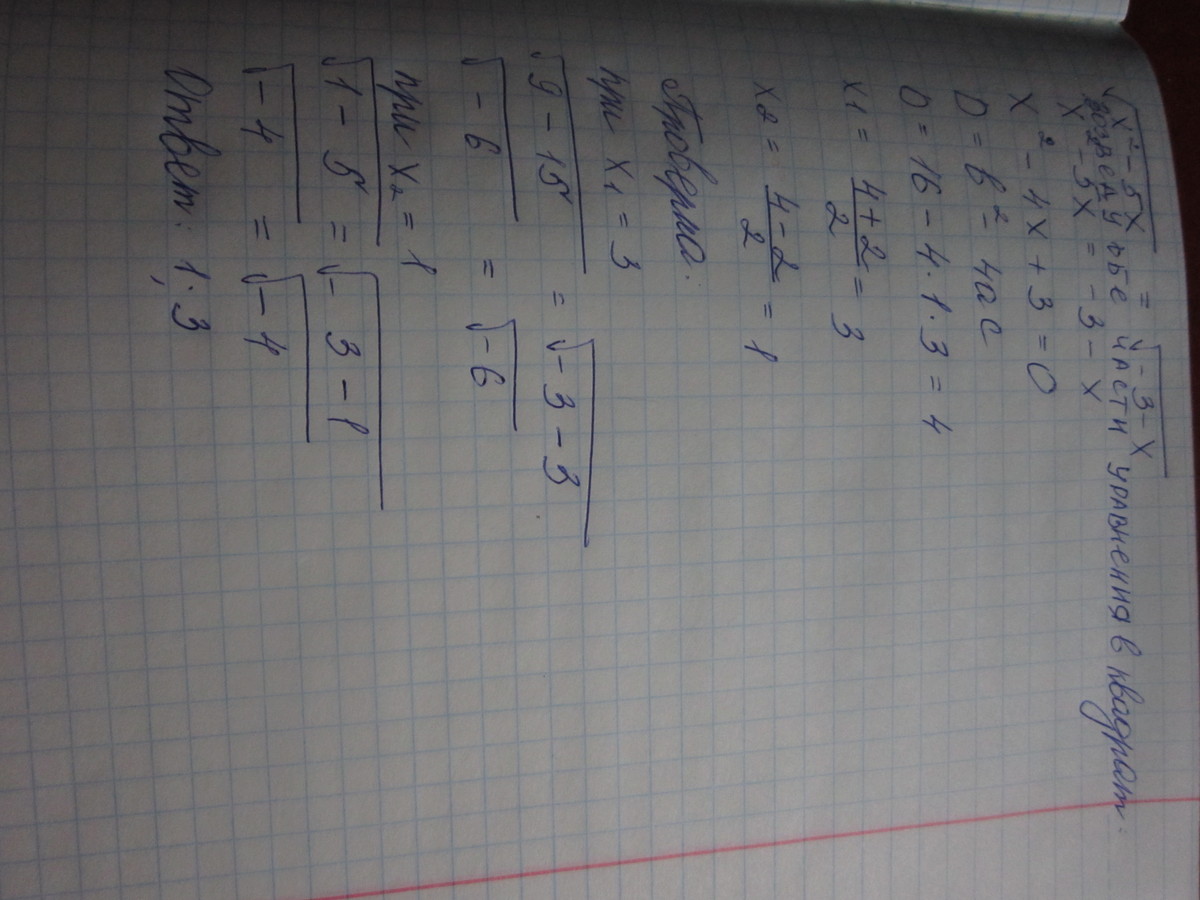 √x² - 5x = √-3-x
возведу обе части уравнения в квадрат:
x² - 5x = -3 - x
x² - 4x + 3 = 0
D = b² - 4ac
D = 16 - 4 · 1 · 3 = 4
x1 = 4+2/2 = 3
x2 = 4-2/2 = 1
Проверка:
при x1 = 3
√9 - 15 = √-3 - 3
√-6 = √-6
при x2 = 1
√1 - 5 = √-3 - 1
√-4 = √-4
Ответ: 1; 3